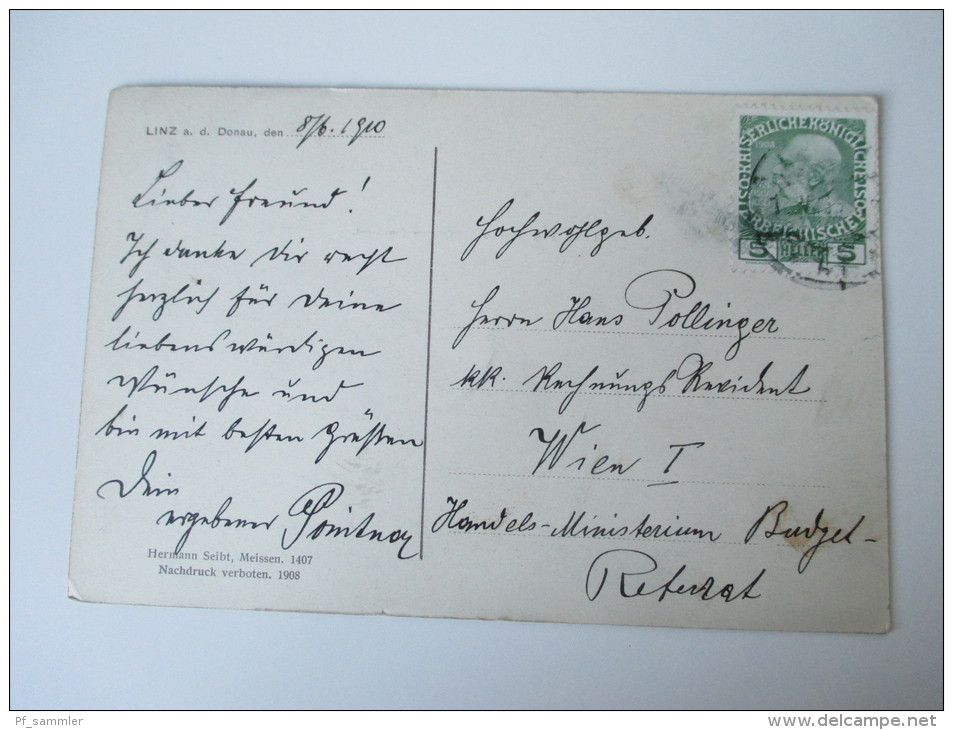 LINZ a. d. Donau, den 8/6. 1910
Lieber Freund!
Ich danke Dir recht
herzlich für Deine
liebenswürdigen
Wünsche und
bin mit besten Grüßen
Dein
ergebener
Hermann Seibt, Meissen. 1407
Nachdruck verboten. 1908
Hochwohlgeb.
Herrn Hans Pollinger
kk. Rechnungs Revident
Wien I
Handels-Ministerium Budget-
Referat
1908
KAISERLICHE KÖNIGLICHE
ÖSTERREICHISCHE POST
5 HELLER 5
Pf_sammler
www.delcampe.net